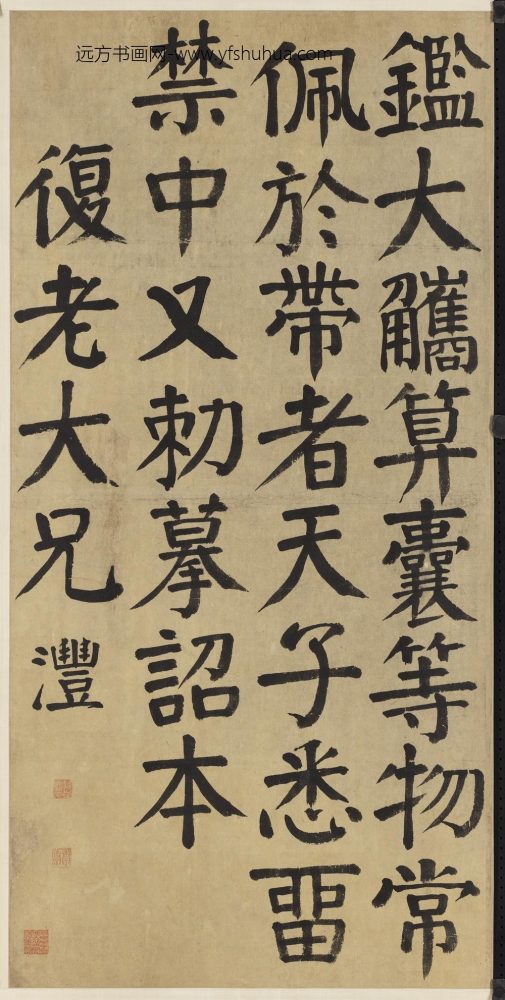 远方书画网-www.yfshuhua.com
鑑大觿算囊等物常
佩於帶者天子悉畱
禁中又勅摹詔本
復老大兄
灃